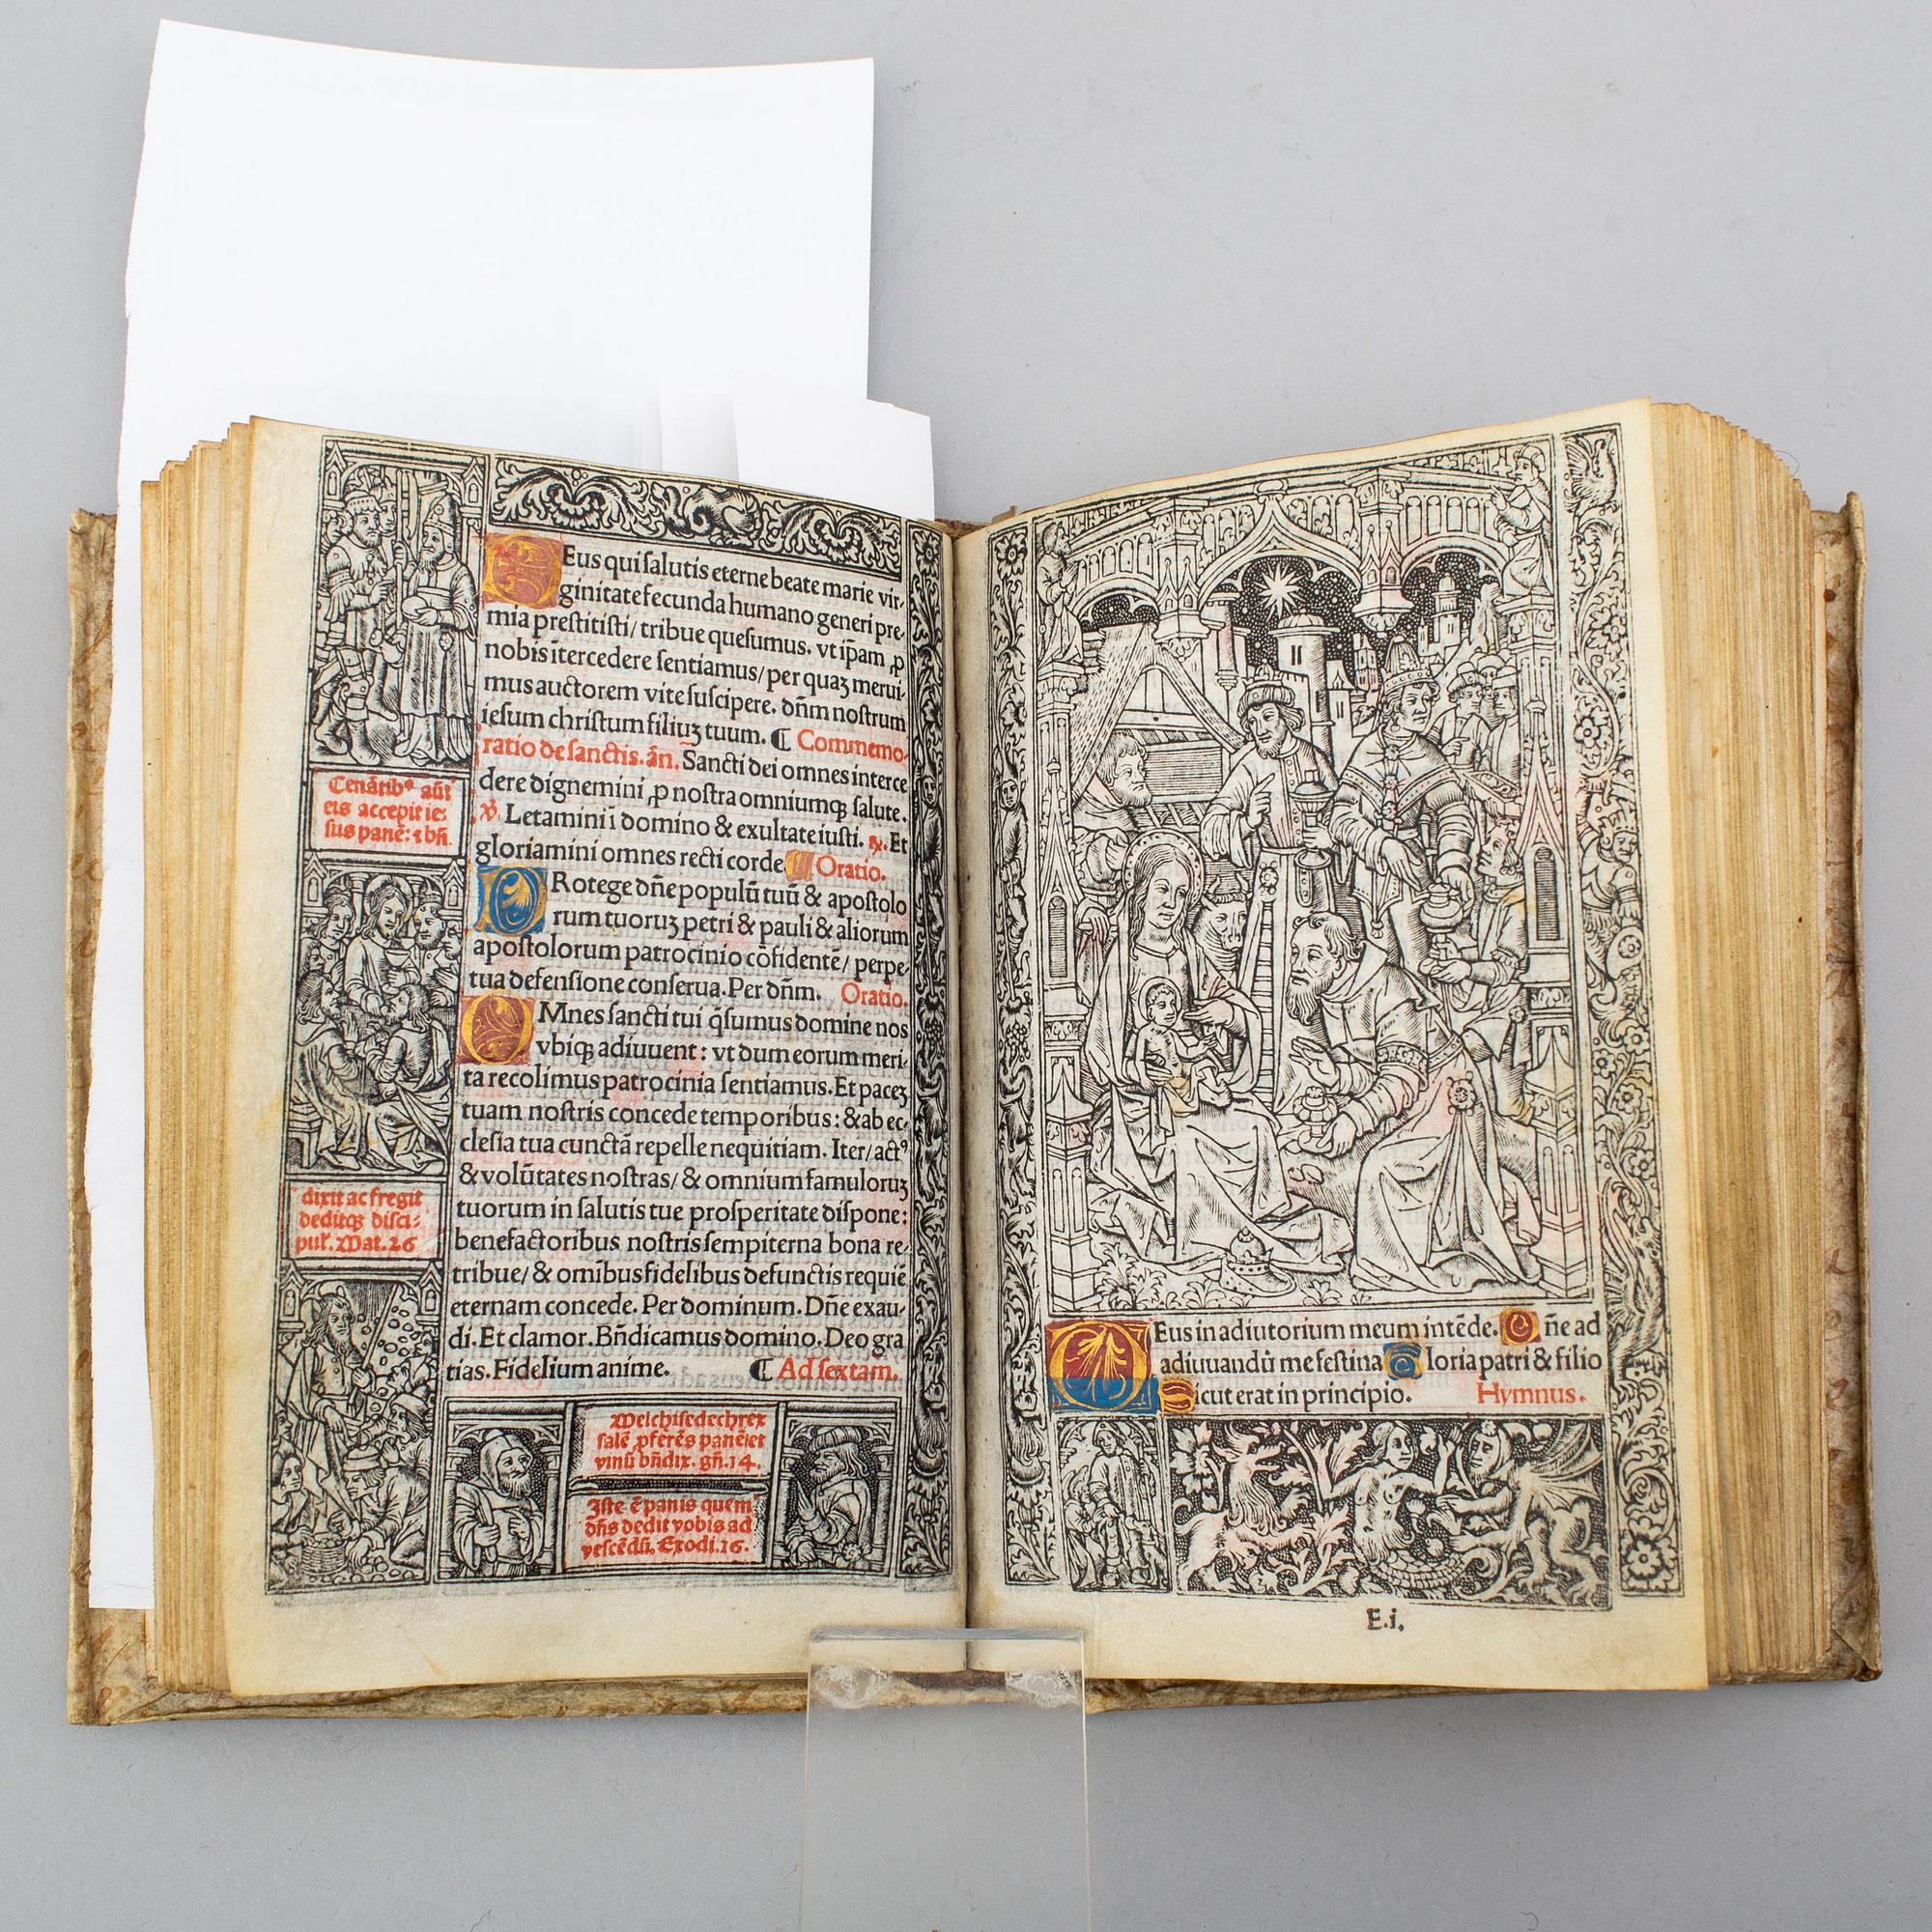 Eus qui salutis eterne beate marie vir-
ginitate fecunda humano generi pre-
mia prestitisti/ tribue quesumus. vt ip̄am ꝓ
nobis ītercedere sentiamus/ per quaꝫ merui-
mus auctorem vite suscipere. dn̄m nostrum
iesum christum filiuꝫ tuum. ¶ Commemo-
ratio de sanctis. an̄. Sancti dei omnes interce
dere dignemini ꝓ nostra omniumqꝫ salute.
℣. Letamini ī domino & exultate iusti. ℞. Et
gloriamini omnes recti corde Oratio.
PRotege dn̄e populū tuū & apostolo
rum tuoruꝫ petri & pauli & aliorum
apostolorum patrocinio cōfidentē/ perpe-
tua defensione conserua. Per dn̄m. Oratio.
OMnes sancti tui q̄sumus domine nos
vbiqꝫ adiuuent: vt dum eorum meri-
ta recolimus patrocinia sentiamus. Et paceꝫ
tuam nostris concede temporibus: & ab ec-
clesia tua cunctā repelle nequitiam. Iter/ actꝰ
& volūtates nostras/ & omnium famuloruꝫ
tuorum in salutis tue prosperitate dispone:
benefactoribus nostris sempiterna bona re-
tribue/ & omībus fidelibus defunctis requiē
eternam concede. Per dominum. Dn̄e exau-
di. Et clamor. Bn̄dicamus domino. Deo gra
tias. Fidelium anime. ¶ Ad sextam.
Cenātibꝰ aūt
eis accepit ie-
sus panē: ⁊ bn̄
dixit ac fregit
deditqꝫ disci-
pul'. Mat. 26
Melchisedech rex
salē ꝓferēs panē et
vinū bn̄dix. gn̄. 14.
Iste ē panis quem
dn̄s dedit vobis ad
vescēdū. Exodi. 16.
DEus in adiutorium meum intēde. Dn̄e ad
adiuuandū me festina Gloria patri & filio
Sicut erat in principio. Hymnus.
E.i.